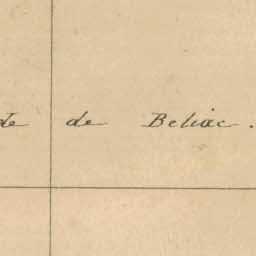 de de Beliac.